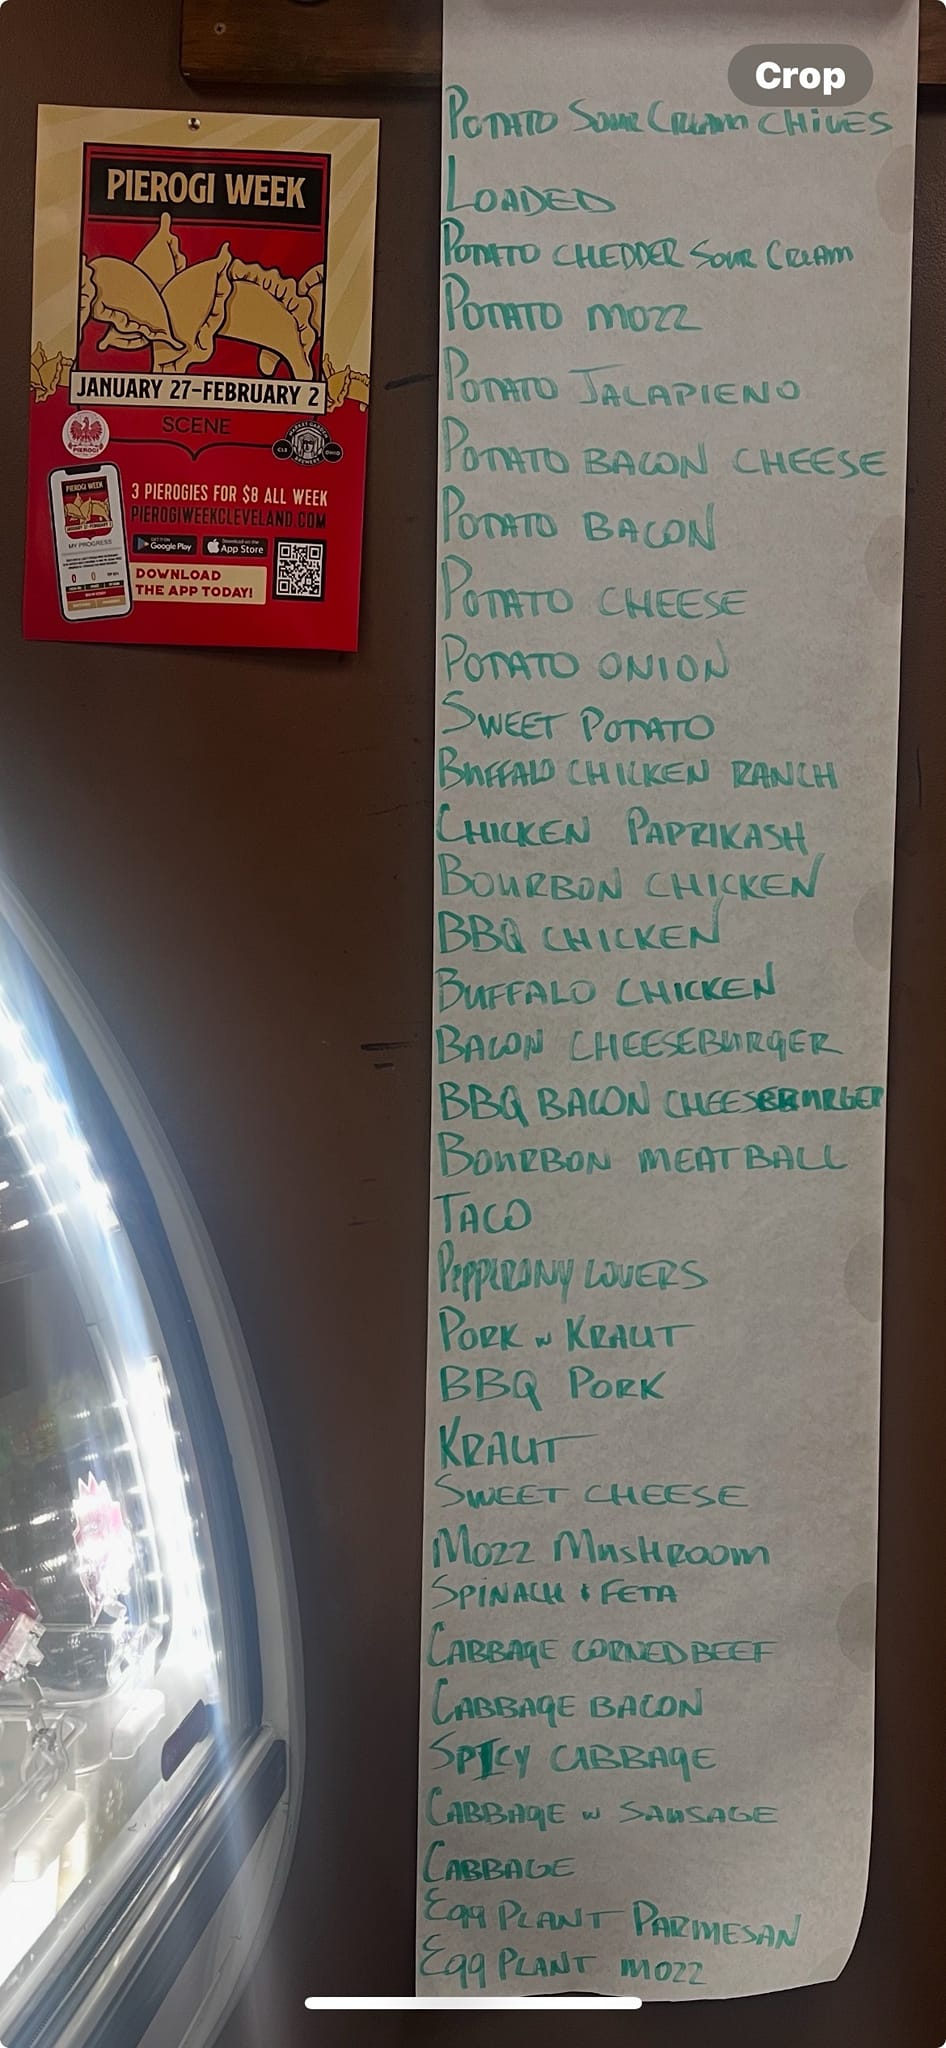 Crop
PIEROGI WEEK
JANUARY 27-FEBRUARY 2
SCENE
PIEROGI
MARKET GARDEN
BREWERY
CLE
OHIO
3 PIEROGIES FOR $8 ALL WEEK
PIEROGIWEEKCLEVELAND.COM
PIEROGI WEEK
MY PROGRESS
GET IT ON
Google Play
Download on the
App Store
DOWNLOAD
THE APP TODAY!
POTATO SOUR CREAM CHIVES
LOADED
POTATO CHEDDER SOUR CREAM
POTATO MOZZ
POTATO JALAPIENO
POTATO BACON CHEESE
POTATO BACON
POTATO CHEESE
POTATO ONION
SWEET POTATO
BUFFALO CHICKEN RANCH
CHICKEN PAPRIKASH
BOURBON CHICKEN
BBQ CHICKEN
BUFFALO CHICKEN
BACON CHEESEBURGER
BBQ BACON CHEESEBURGER
BOURBON MEATBALL
TACO
PEPPERONY LOVERS
PORK W KRAUT
BBQ PORK
KRAUT
SWEET CHEESE
MOZZ MUSHROOM
SPINACH & FETA
CABBAGE CORNED BEEF
CABBAGE BACON
SPICY CABBAGE
CABBAGE W SAUSAGE
CABBAGE
Egg PLANT PARMESAN
Egg PLANT MOZZ